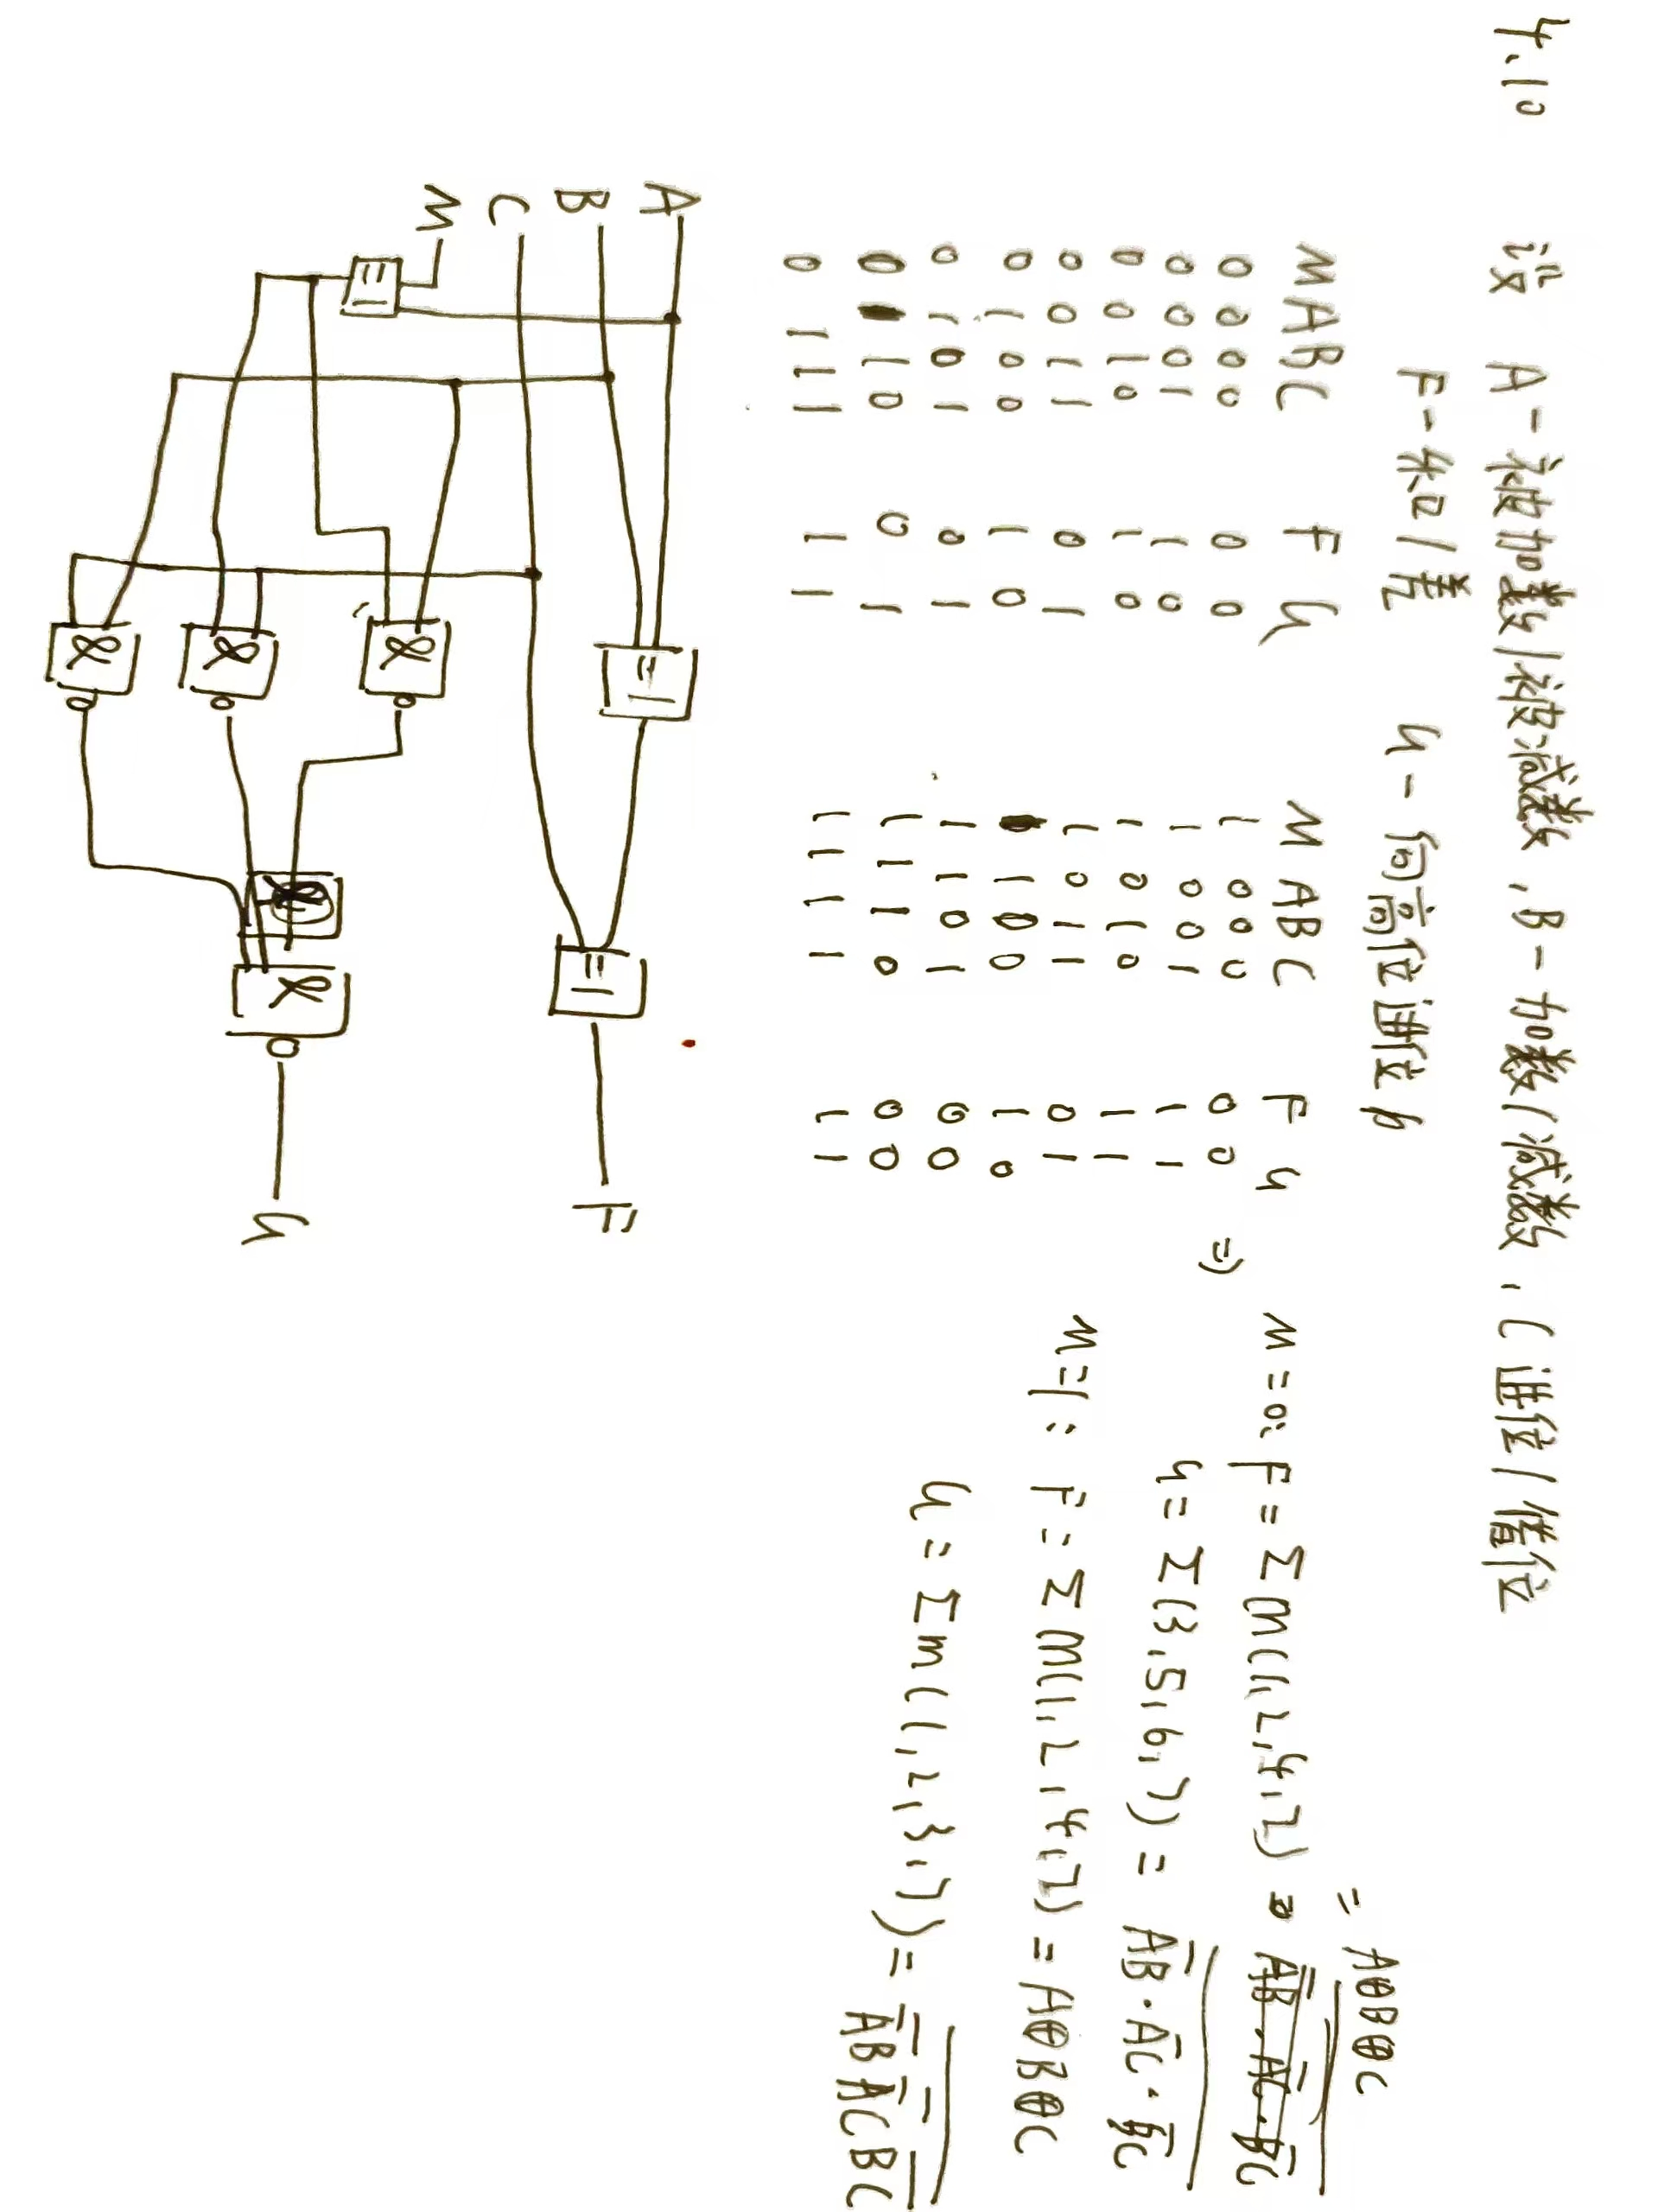 4.10 设 A-被加数/被减数,B-加数/减数,C进位/借位
F-和/差 G-向高位进位
M A B C F G
0 0 0 0 0 0
0 0 0 1 1 0
0 0 1 0 1 0
0 0 1 1 0 1
0 1 0 0 1 0
0 1 0 1 0 1
0 1 1 0 0 1
0 1 1 1 1 1
M A B C F G
1 0 0 0 0 0
1 0 0 1 1 1
1 0 1 0 1 1
1 0 1 1 0 1
1 1 0 0 1 0
1 1 0 1 0 0
1 1 1 0 0 0
1 1 1 1 1 1
⇒ M=0: F=Σm(1,2,4,7) = A⊕B⊕C
G=Σ(3,5,6,7)=\overline{\overline{AB}·\overline{AC}·\overline{BC}}
M=1: F=Σm(1,2,4,7)=A⊕B⊕C
G=Σm(1,2,3,7)=\overline{\overline{\overline{A}B}\overline{\overline{A}C}\overline{BC}}
A
B
C
M
=1
=1
=1
&
&
&
&
F
G